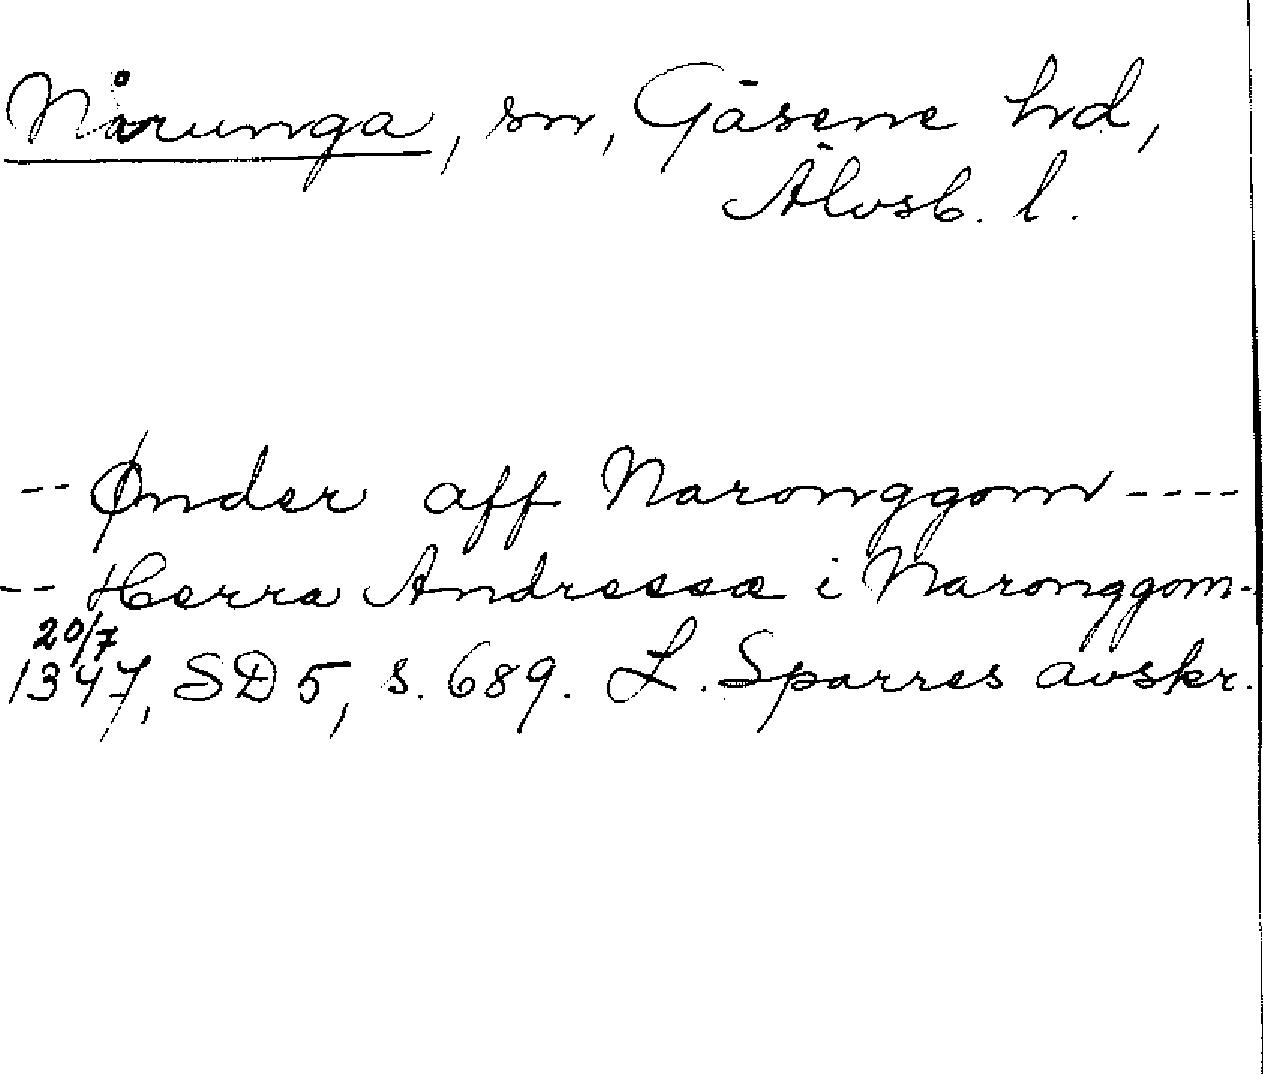 Nårunga, sn, Gäsene hd,
Älvsb. l.
-- Ønder aff Naronggom ----
-- Herra Andresæ i Naronggom-
20/7
1347, SD 5, s. 689. L. Sparres avskr.